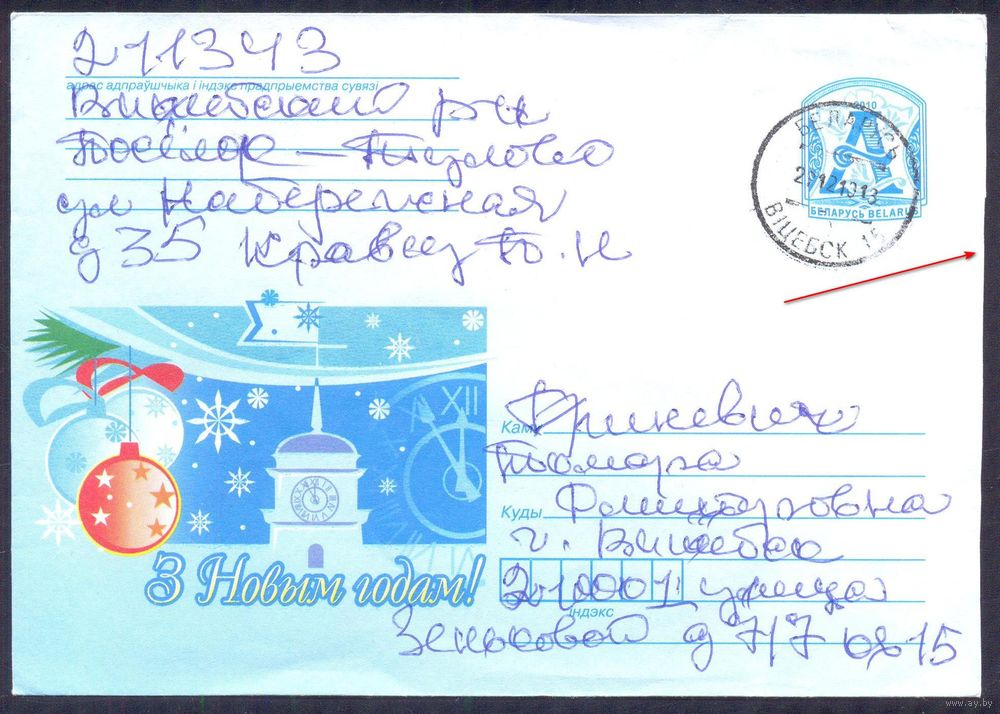 211343
адрас адпраўшчыка і індэкс прадпрыемства сувязі
Витебский р-н
Посёлок — Тулово
ул Набережная
д 35 Кравец Ю. Н
2010
А
БЕЛАРУСЬ BELARUS
БЕЛАРУСЬ
ВІЦЕБСК 15
XII
З Новым годам!
Каму Гриневич
Тамара
Куды
г. Витебск
210001 улица
індэкс
Зеньковой д 7/7 кв 15
www.ay.by